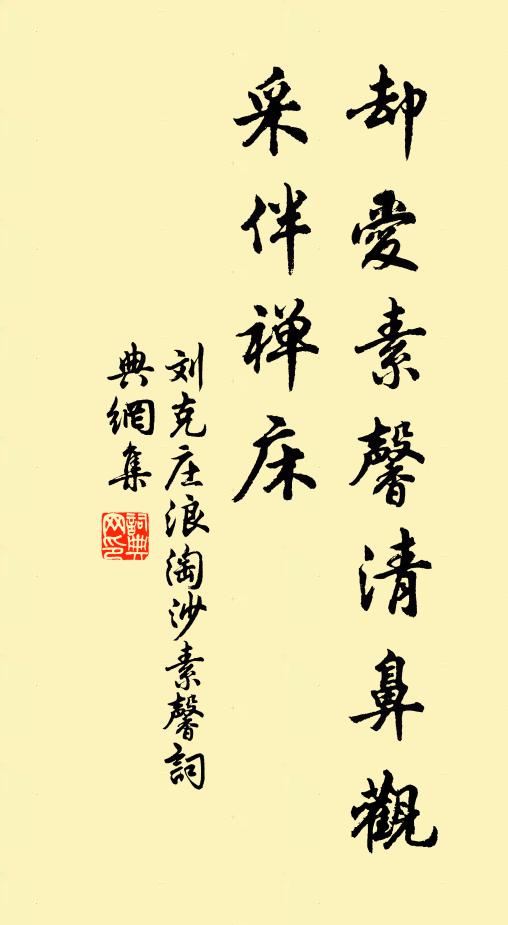 却愛素馨清鼻觀
采伴禅床
刘克庄浪淘沙素馨詞
典網集
詞典網印